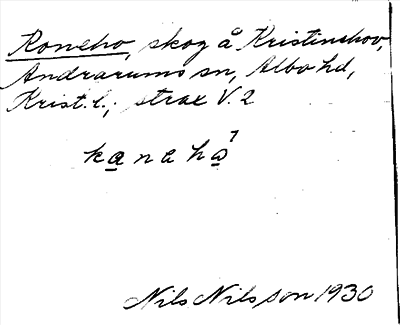 Roneho, skog å Kristinehov,
Andrarums sn, Albo hd,
Krist. l.; strax V. 2
Nils Nilsson 1930